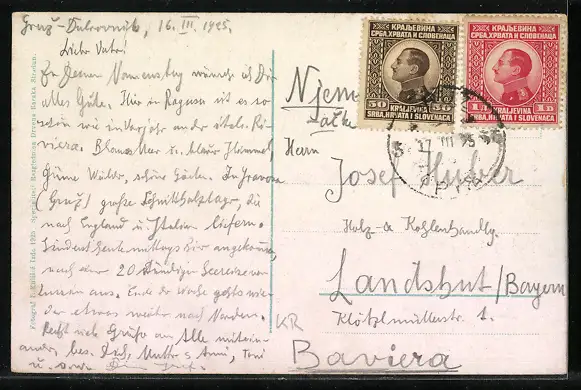 Gruž-Dubrovnik, 16. III. 1925.
Lieber Vater!
Zu Deinem Namenstag wünsche ich Dir
alles Gute. Hier in Ragusa ist es so
schön wie im Vorjahr an der ital. Ri-
viera. Blaues Meer u. blauer Himmel,
grüne Wälder, schöne Gärten. In Gravosa
(Gruž) große Schnittholzlager, die
nach England u. Italien liefern.
Sind erst heute mittags hier angekommen,
nach einer 20 stündigen Seereise von
aus. Ende der Woche gehts wie-
der etwas weiter nach Norden.
Recht viele Grüße an Alle mitein-
ander, bes. Dich, Mutter Anni, Toni
u. s.
Njem
Herrn
Josef Huber
Holz- & Kohlenhandlg.
Landshut/Bayern
Klötzlmüllerstr. 1.
KR
Baviera
КРАЉЕВИНА
СРБА, ХРВАТА И СЛОВЕНАЦА
50 50
KRALJEVINA
SRBA, HRVATA I SLOVENACA
КРАЉЕВИНА
СРБА, ХРВАТА И СЛОВЕНАЦА
1 1
KRALJEVINA
SRBA, HRVATA I SLOVENACA
17 III 25